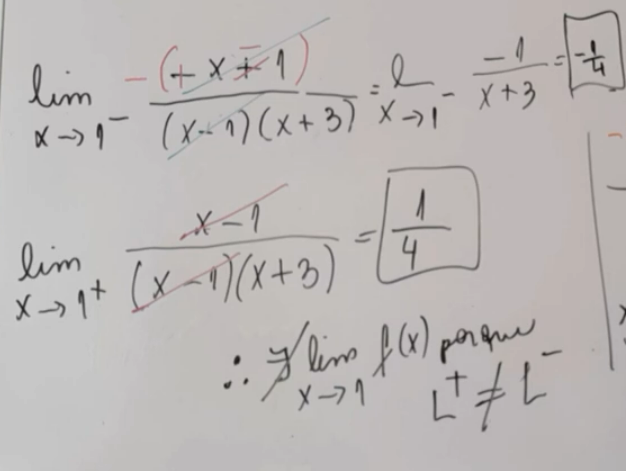 lim x→1⁻ -(+x-1) / (x-1)(x+3) = l x→1⁻ -1 / x+3 = -1/4
lim x→1⁺ x-1 / (x-1)(x+3) = 1/4
∴ ∄ lim x→1 f(x) porque
L⁺ ≠ L⁻